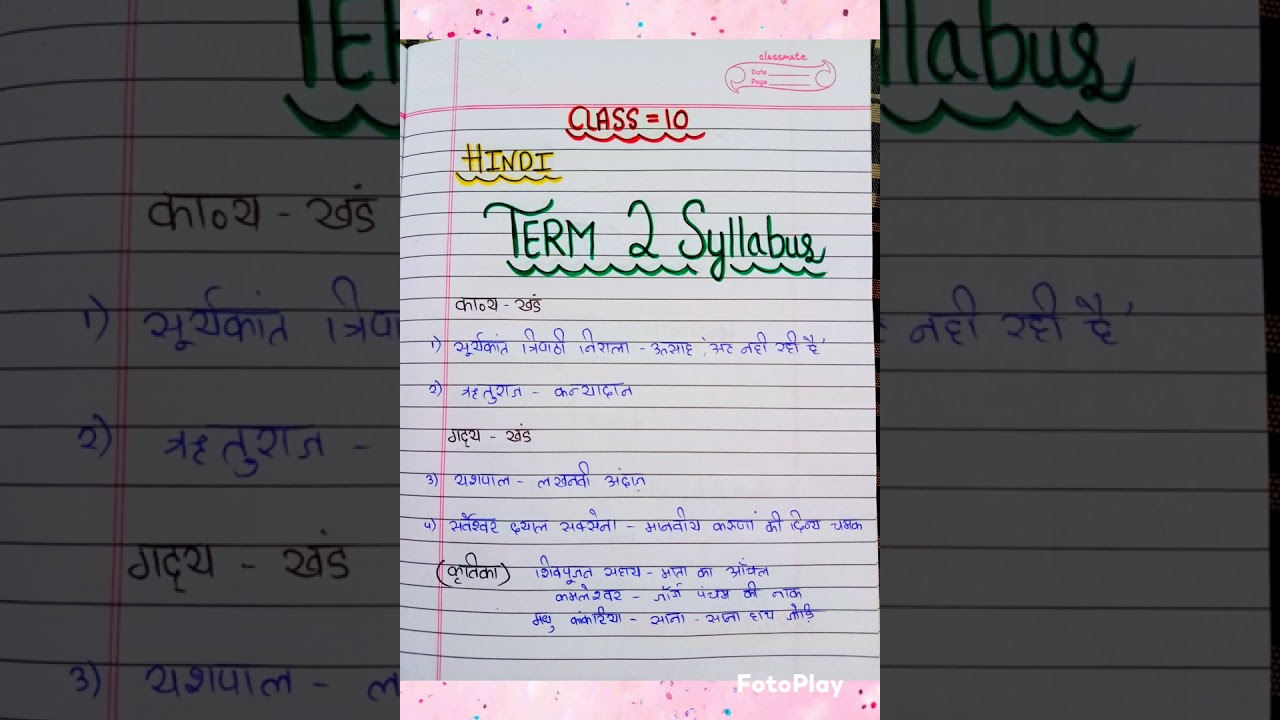 classmate
Date
Page
CLASS = 10
HINDI
TERM 2 Syllabus
काव्य - खंड
१) सूर्यकांत त्रिपाठी निराला - उत्साह, 'अट नही रही है'
२) ऋतुराज - कन्यादान
गद्य - खंड
३) यशपाल - लखनवी अंदाज़
४) सर्वेश्वर दयाल सक्सेना - मानवीय करुणा की दिव्य चमक
(कृतिका) शिवपूजन सहाय - माता का आँचल
कमलेश्वर - जॉर्ज पंचम की नाक
मधु कांकरिया - साना - साना हाथ जोड़ि
FotoPlay